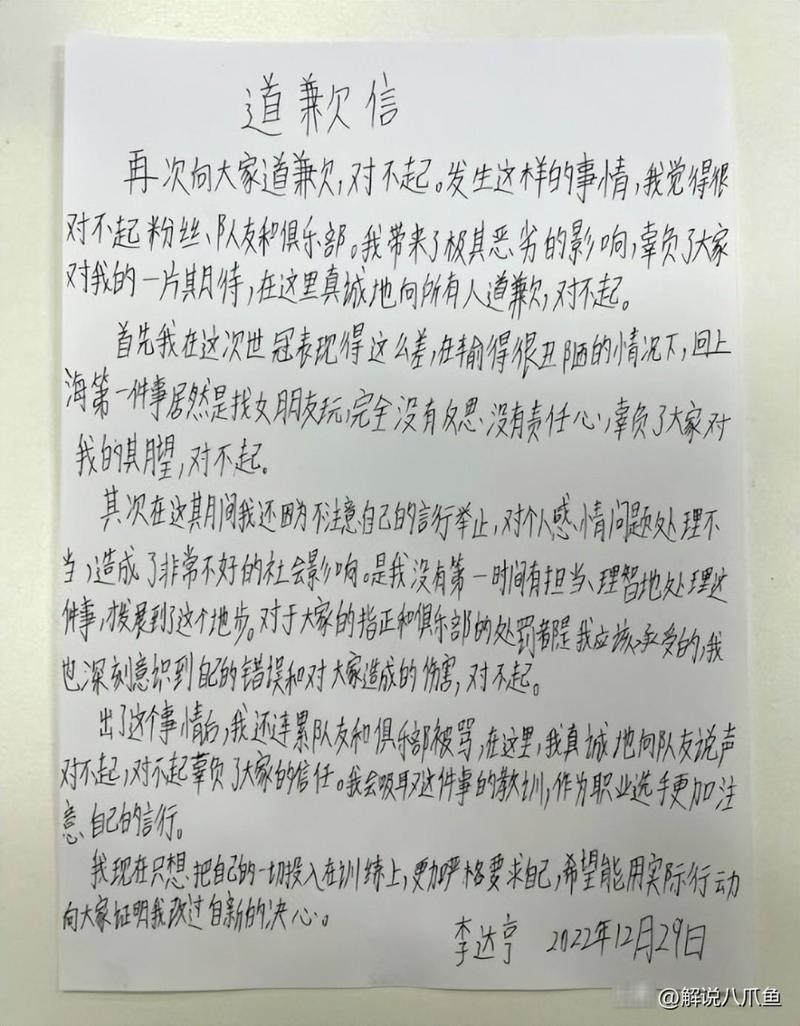 道歉信
再次向大家道歉,对不起。发生这样的事情,我觉得很
对不起粉丝、队友和俱乐部。我带来了极其恶劣的影响,辜负了大家
对我的一片期待,在这里真诚地向所有人道歉,对不起。
首先我在这次世冠表现得这么差,在输得很丑陋的情况下,回上
海第一件事居然是找女朋友玩,完全没有反思没有责任心,辜负了大家对
我的期望,对不起。
其次在这期间我还因为不注意自己的言行举止,对个人感情问题处理不
当,造成了非常不好的社会影响。是我没有第一时间有担当、理智地处理这
件事,才发展到了这个地步。对于大家的指正和俱乐部的处罚都是我应该承受的,我
也深刻意识到自己的错误和对大家造成的伤害,对不起。
出了这个事情后,我还连累队友和俱乐部被骂,在这里,我真诚地向队友说声
对不起,对不起辜负了大家的信任。我会吸取这件事的教训,作为职业选手更加注
意自己的言行。
我现在只想把自己的一切投入在训练上,更加严格要求自己,希望能用实际行动
向大家证明我改过自新的决心。
李达亨 2022年12月29日
@解说八爪鱼